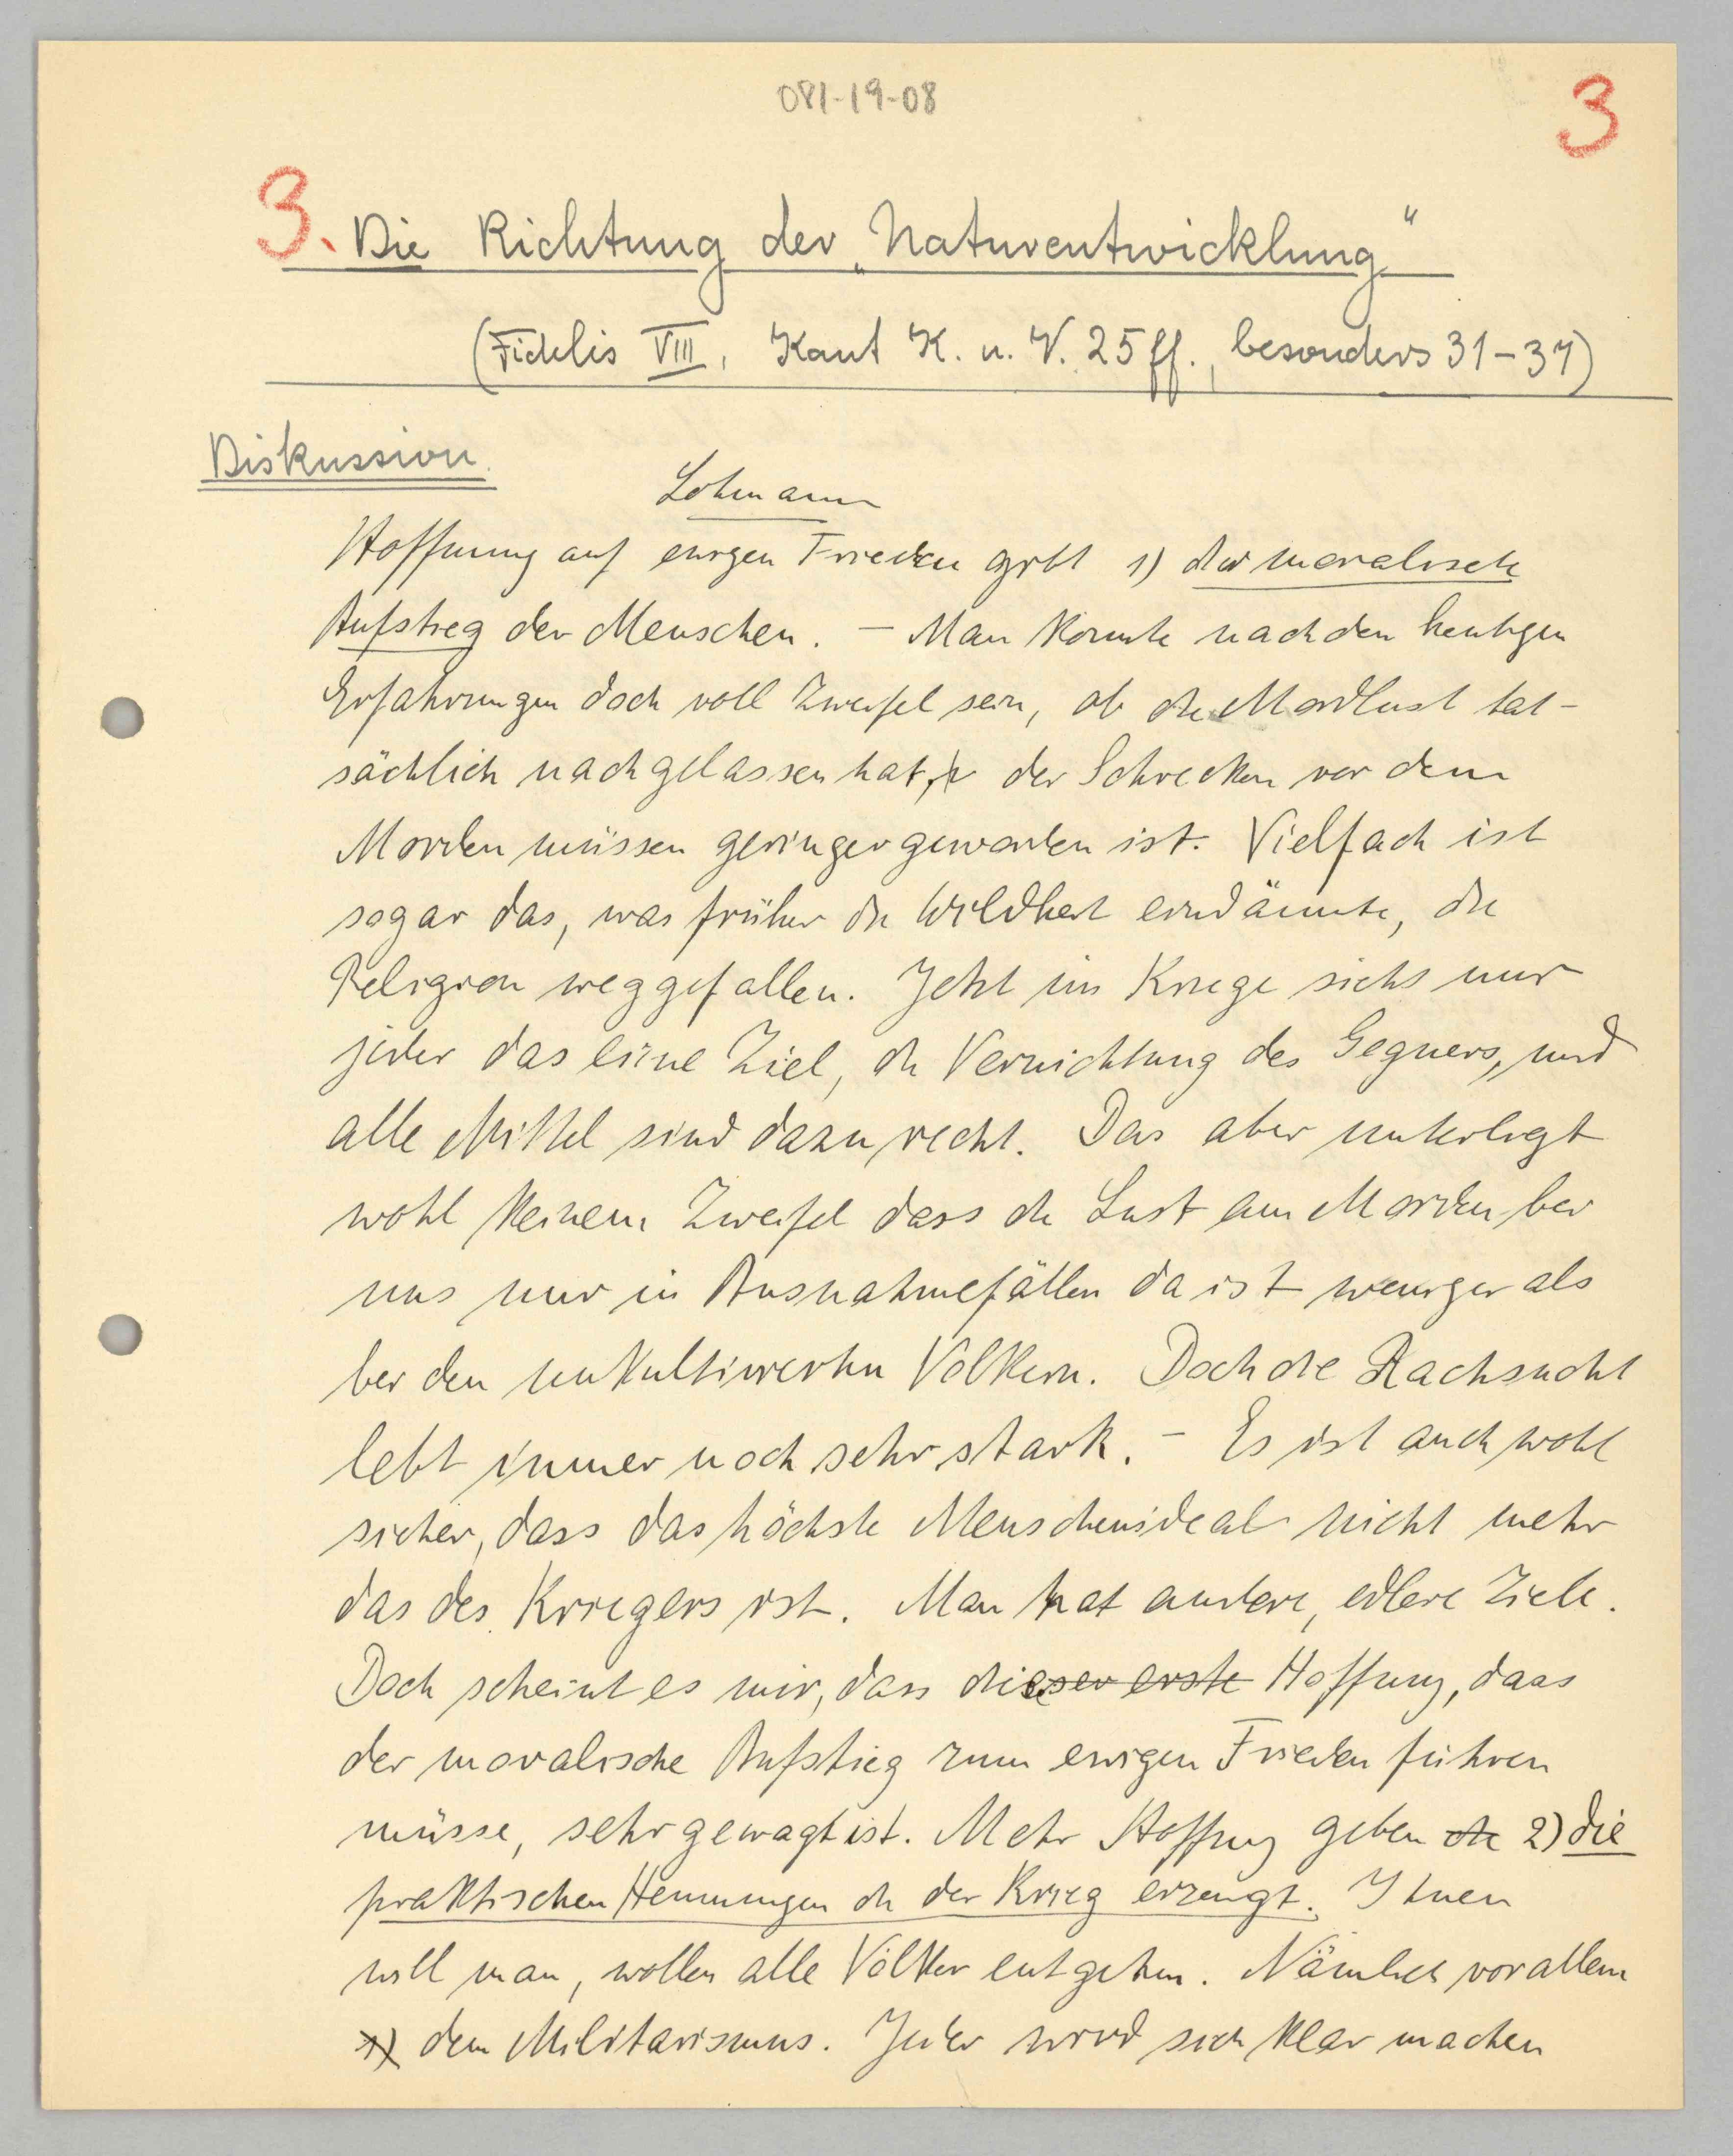 081-19-08
3
3. Die Richtung der „Naturentwicklung“
(Fidelis VIII, Kant K. u. V. 25 ff., besonders 31-34)
Diskussion.
Lohmann
Hoffnung auf ewigen Frieden gibt 1) der moralische
Aufstieg der Menschen. – Man könnte nach den heutigen
Erfahrungen doch voll Zweifel sein, ob die Mordlust tat-
sächlich nachgelassen hat, der Schrecken vor dem
Morden müssen geringer geworden ist. Vielfach ist
sogar das, was früher die Wildheit eindämmte, die
Religion weggefallen. Jetzt im Kriege sieht nur
jeder das eine Ziel, die Vernichtung des Gegners, und
alle Mittel sind dazu recht. Das aber unterliegt
wohl keinem Zweifel dass die Lust am Morden bei
uns nur in Ausnahmefällen da ist weniger als
bei den unkultivierten Völkern. Doch die Rachsucht
lebt immer noch sehr stark. – Es ist auch wohl
sicher, dass das höchste Menschenideal nicht mehr
das des Kriegers ist. Man hat andere, edlere Ziele.
Doch scheint es mir, dass dieser erste Hoffnung, dass
der moralische Aufstieg zum ewigen Frieden führen
müsse, sehr gewagt ist. Mehr Hoffnung geben die 2) die
praktischen Hemmungen die der Krieg erzeugt. Ihnen
will man, wollen alle Völker entgehen. Nämlich vor allem
1) dem Militarismus. Jeder wird sich klar machen